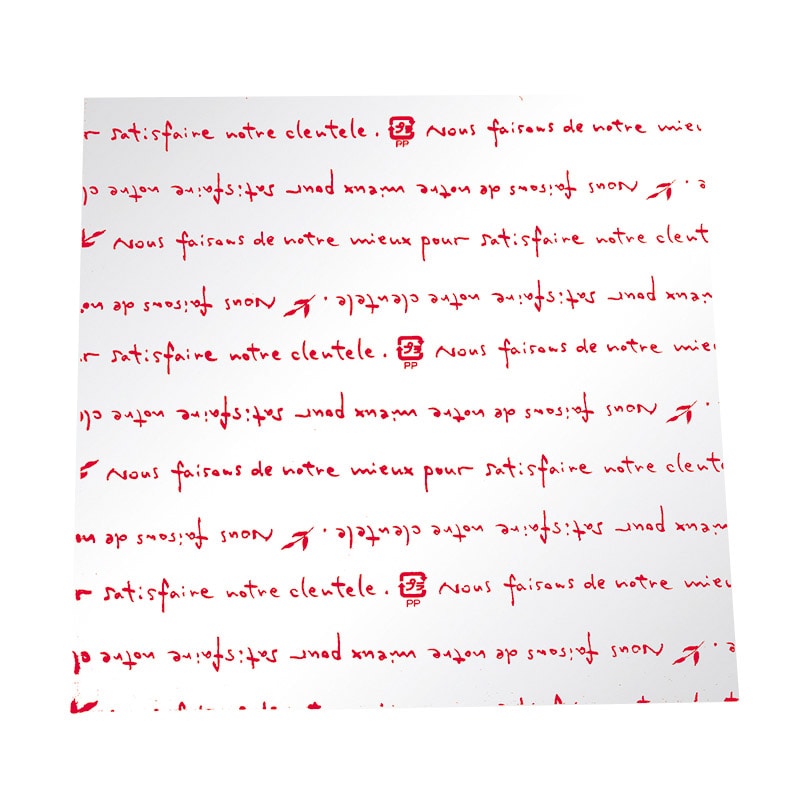 r satisfaire notre clentele. プラ PP Nous faisons de notre mieu
e. Nous faisons de notre mieux pour satisfaire notre cl
Nous faisons de notre mieux pour satisfaire notre clent
ieux pour satisfaire notre clentele. Nous faisons de no
r satisfaire notre clentele. プラ PP Nous faisons de notre mie
. Nous faisons de notre mieux pour satisfaire notre cl
Nous faisons de notre mieux pour satisfaire notre clent
ieux pour satisfaire notre clentele. Nous faisons de no
r satisfaire notre clentele. プラ PP Nous faisons de notre mieu
e. Nous faisons de notre mieux pour satisfaire notre cl